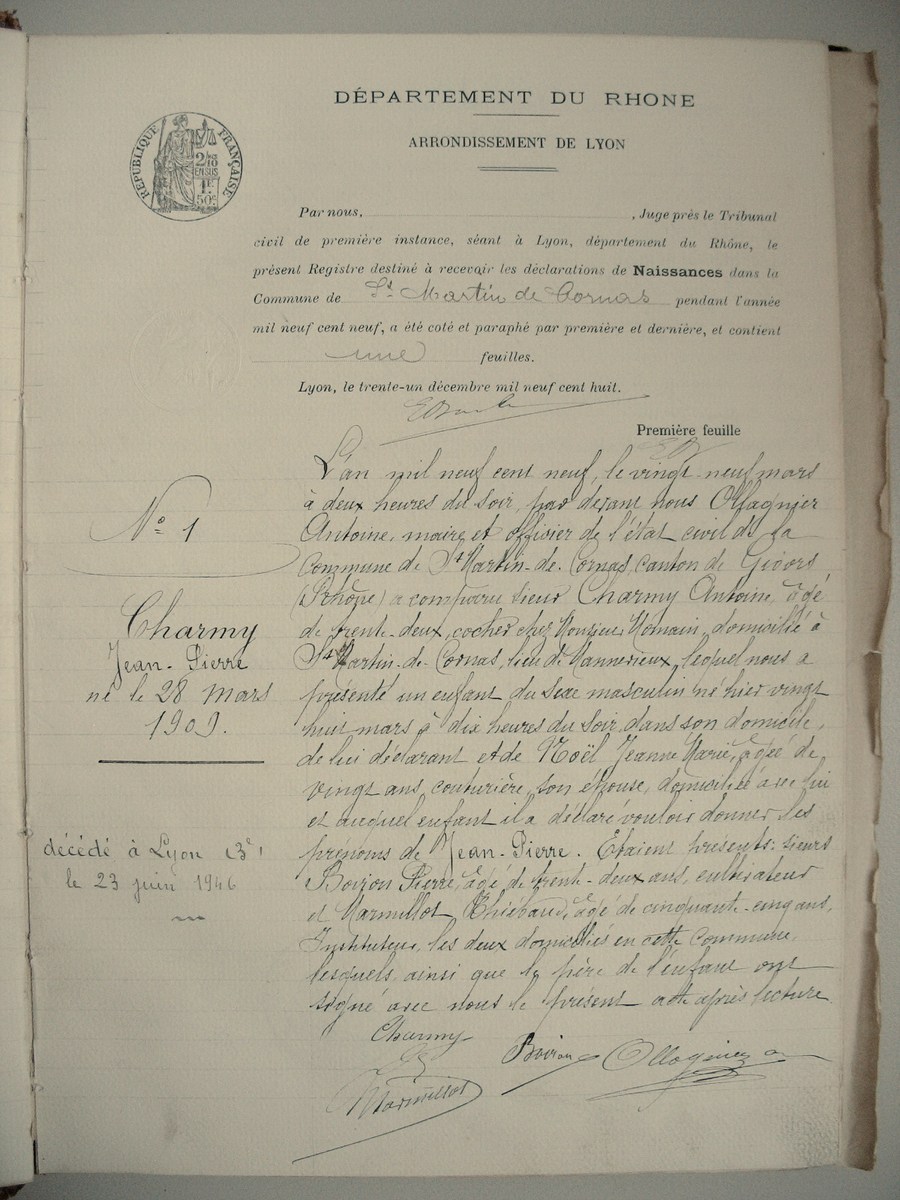 DÉPARTEMENT DU RHONE
ARRONDISSEMENT DE LYON
RÉPUBLIQUE FRANÇAISE
2/10
EN SUS
1F
50c
Par nous, , Juge près le Tribunal
civil de première instance, séant à Lyon, département du Rhône, le
présent Registre destiné à recevoir les déclarations de Naissances dans la
Commune de St Martin de Cornas pendant l'année
mil neuf cent neuf, a été coté et paraphé par première et dernière, et contient
une feuilles.
Lyon, le trente-un décembre mil neuf cent huit.
Première feuille
No 1
Charmy
Jean-Pierre
né le 28 mars
1909.
décédé à Lyon (3e)
le 23 juin 1946
L'an mil neuf cent neuf, le vingt-neuf mars
à deux heures du soir, par devant nous Ollagnier
Antoine, maire et officier de l'état civil de la
Commune de St Martin-de-Cornas, canton de Givors
(Rhône) a comparu sieur Charmy Antoine, âgé
de trente-deux, cocher chez Monsieur Romain, domicilié à
St Martin-de-Cornas, lieu de Mannevieux, lequel nous a
présenté un enfant du sexe masculin né hier vingt
huit mars à dix heures du soir, dans son domicile,
de lui déclarant et de Noël Jeanne Marie, âgée de
vingt ans, couturière, son épouse, domiciliée avec lui
et auquel enfant il a déclaré vouloir donner les
prénoms de Jean-Pierre. Étaient présents: sieurs
Boiron Pierre, âgé de trente-deux ans, cultivateur
et Marmillot Thiébaud, âgé de cinquante-cinq ans,
Instituteur, les deux domiciliés en cette commune,
lesquels, ainsi que le père de l'enfant ont
signé avec nous le présent acte après lecture
Charmy
Boiron Ollagnier
Marmillot